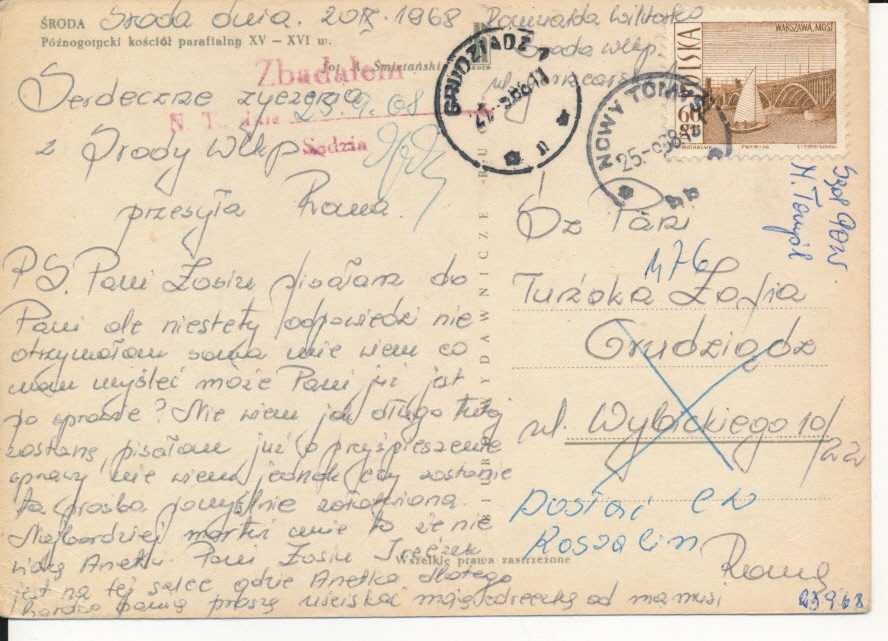 ŚRODA Środa dnia. 20 IX. 1968
Późnogotycki kościół parafialny XV — XVI w.
fot. A. Śmietański
Zbadałem
N. T., dnia 23.9.68
Sędzia
Serdeczne życzenia
z Środy Wlkp
przesyła
P.S. Pani Zosiu pisałam do
Pani ale niestety odpowiedzi nie
otrzymałam sama nie wiem co
mam myśleć może Pani już jest
po sprawie? Nie wiem jak długo tutaj
zostanę, pisałam już o przyśpieszenie
sprawy nie wiem jednak czy zostanie
ta prośba pomyślnie załatwiona.
Najbardziej martwi mnie to że nie
widzę Anetki. Pani Zosiu
jest na tej salce gdzie Anetka dlatego
bardzo panią proszę uściskać moją córeczkę od mamusi
Środa Wlkp
ul.
GRUDZIĄDZ 1
NOWY TOMYŚL
25.-9.68
POLSKA
WARSZAWA, MOST
60 GR
MICHALUK PWPW-66
N. Tomyśl
BIURO WYDAWNICZE RUCH
476
Turżoka Zofia
Grudziądz
ul. Wybickiego 10/22
Koszalin
Wszelkie prawa zastrzeżone
23 9 68